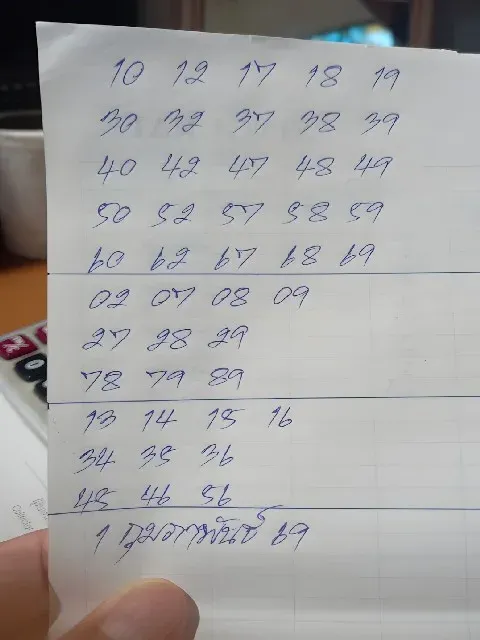 10 12 17 18 19
30 32 37 38 39
40 42 47 48 49
50 52 57 58 59
60 62 67 68 69
02 07 08 09
27 28 29
78 79 89
13 14 15 16
34 35 36
45 46 56
1 กุมภาพันธ์ 69